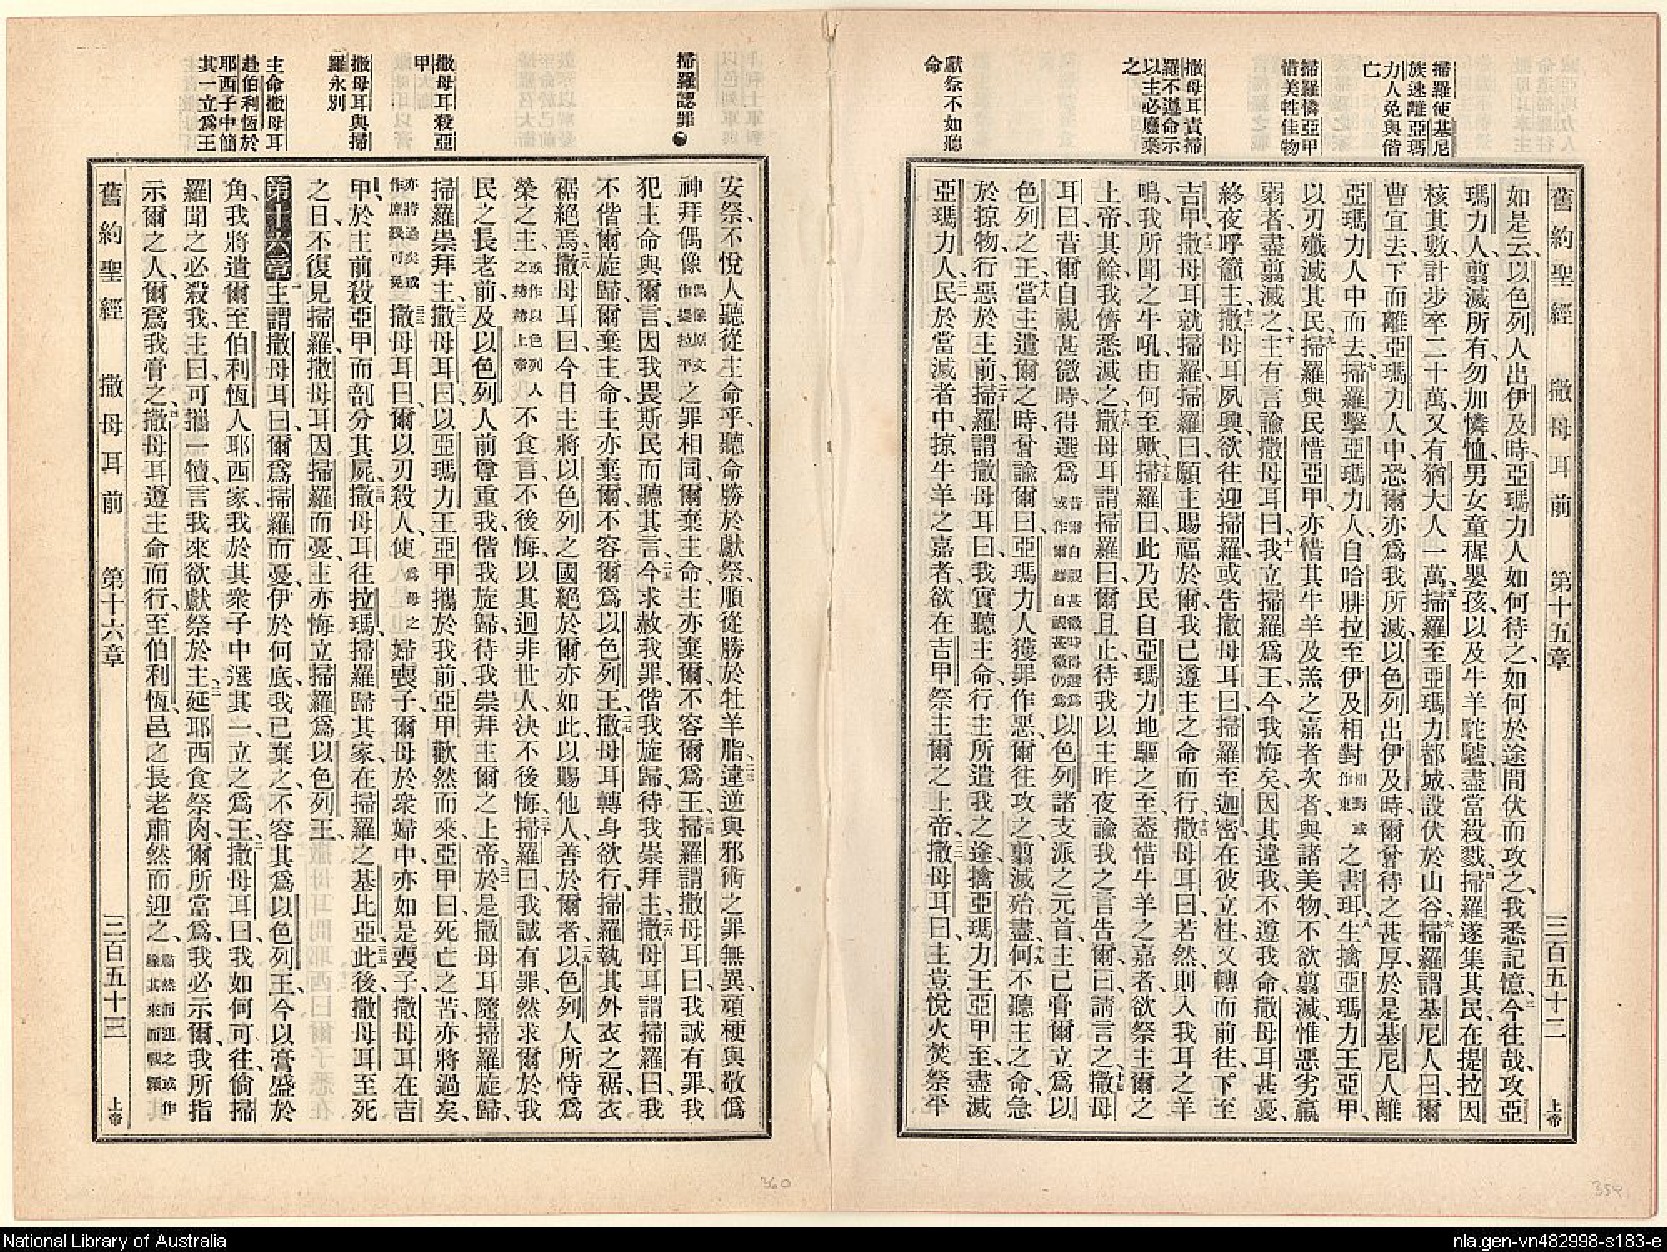 舊約聖經 撒母耳前 第十五章 三百五十二 上帝
掃羅使基尼
族速離亞瑪
力人免與偕
亡
掃羅憐亞甲
惜美牲佳物
撒母耳責掃
羅不遵命示
以主必廢棄
之
獻祭不如聽
命
如是云以色列人出伊及時亞瑪力人如何待之如何於途間伏而攻之我悉記憶今往哉攻亞
瑪力人翦滅所有勿加憐恤男女童穉嬰孩以及牛羊駝驢盡當殺戮掃羅遂集其民在提拉因
核其數計步卒二十萬又有猶大人一萬掃羅至亞瑪力都城設伏於山谷掃羅謂基尼人曰爾
曹宜去下而離亞瑪力人中恐爾亦為我所滅以色列出伊及時爾曾待之甚厚於是基尼人離
亞瑪力人中而去掃羅擊亞瑪力人自哈腓拉至伊及相對相對或作東之書珥生擒亞瑪力王亞甲
以刃殲滅其民掃羅與民惜亞甲亦惜其牛羊及羔之嘉者次者與諸美物不欲翦滅惟惡劣羸
弱者盡翦滅之主有言諭撒母耳曰我立掃羅為王今我悔矣因其違我不遵我命撒母耳甚憂
終夜呼籲主撒母耳夙興欲往迎掃羅或告撒母耳曰掃羅至迦密在彼立柱又轉而前往下至
吉甲撒母耳就掃羅掃羅曰願主賜福於爾我已遵主之命而行撒母耳曰若然則入我耳之羊
鳴我所聞之牛吼由何至歟掃羅曰此乃民自亞瑪力地驅之至蓋惜牛羊之嘉者欲祭主爾之
上帝其餘我儕悉滅之撒母耳謂掃羅曰爾且止待我以主昨夜諭我之言告爾曰請言之撒母
耳曰昔爾自視甚微時得選為昔爾自視甚微時得選為或作爾雖自視甚微仍為以色列諸支派之元首主已膏爾立為以
色列之王當主遣爾之時曾諭爾曰亞瑪力人獲罪作惡爾往攻之翦滅殆盡何不聽主之命急
於掠物行惡於主前掃羅謂撒母耳曰我實聽主命行主所遣我之途擒亞瑪力王亞甲至盡滅
亞瑪力人民於當滅者中掠牛羊之嘉者欲在吉甲祭主爾之上帝撒母耳曰主豈悅火焚祭平
掃羅認罪
撒母耳殺亞
甲
撒母耳與掃
羅永別
主命撒母耳
赴伯利恆於
耶西子中簡
其一立為王
安祭不悅人聽從主命乎聽命勝於獻祭順從勝於牡羊脂違逆與邪術之罪無異頑梗與敬偽
神拜偶像偶像原文作提拉平之罪相同爾棄主命主亦棄爾不容爾為王掃羅謂撒母耳曰我誠有罪我
犯主命與爾言因我畏斯民而聽其言今求赦我罪偕我旋歸待我崇拜主撒母耳謂掃羅曰我
不偕爾旋歸爾棄主命主亦棄爾不容爾為以色列王撒母耳轉身欲行掃羅執其外衣之裾衣
裾絕焉撒母耳曰今日主將以色列之國絕於爾亦如此以賜他人善於爾者以色列人所恃為
榮之主或作以色列人之榮耀上帝不食言不後悔以其迥非世人決不後悔掃羅曰我誠有罪然求爾於我
民之長老前及以色列人前尊重我偕我旋歸待我崇拜主爾之上帝於是撒母耳隨掃羅旋歸
掃羅崇拜主撒母耳曰以亞瑪力王亞甲攜於我前亞甲歡然而來亞甲曰死亡之苦亦將過矣
亦將過矣或作庶幾可免撒母耳曰爾以刃殺人使為母之婦喪子爾母於衆婦中亦如是喪子撒母耳在吉
甲於主前殺亞甲而剖分其屍撒母耳往拉瑪掃羅歸其家在掃羅之基比亞此後撒母耳至死
之日不復見掃羅撒母耳因掃羅而憂主亦悔立掃羅為以色列王
第十六章主謂撒母耳曰爾為掃羅而憂伊於何底我已棄之不容其為以色列王今以膏盛於
角我將遣爾至伯利恆人耶西家我於其衆子中選其一立之為王撒母耳曰我如何可往倘掃
羅聞之必殺我主曰可攜一犢言我來欲獻祭於主延耶西食祭肉爾所當為我必示爾我所指
示爾之人爾為我膏之撒母耳遵主命而行至伯利恆邑之長老肅然而迎之肅然而迎之或作
舊約聖經 撒母耳前 第十六章 三百五十三 上帝
360
354
National Library of Australia
nla.gen-vn482998-s183-e